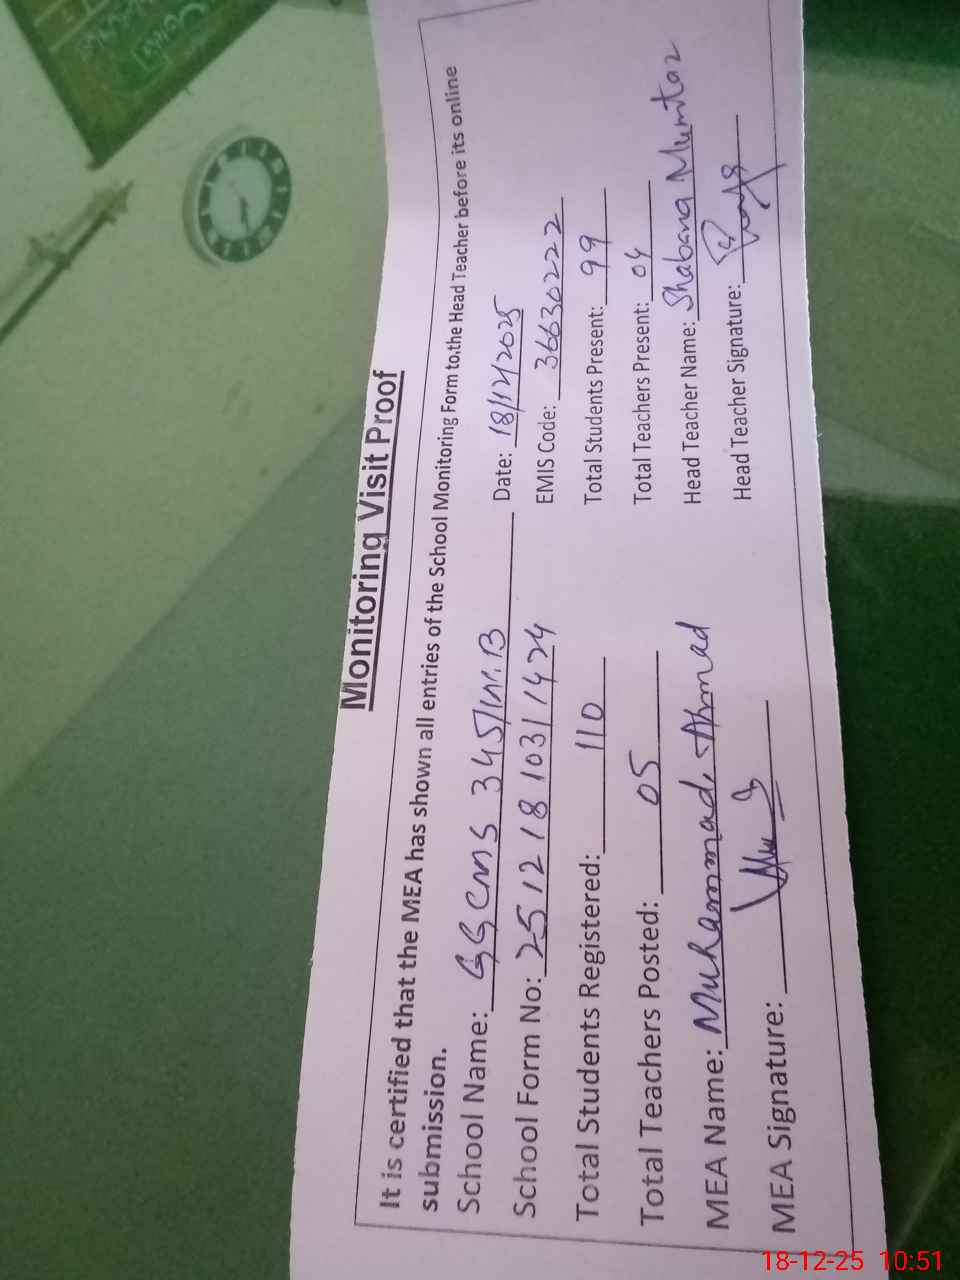 Monitoring Visit Proof
It is certified that the MEA has shown all entries of the School Monitoring Form to the Head Teacher before its online
submission.
School Name: GGCMS 345/W.B Date: 18/12/2025
School Form No: 2512181031424 EMIS Code: 36630222
Total Students Registered: 110 Total Students Present: 99
Total Teachers Posted: 05 Total Teachers Present: 04
MEA Name: Muhammad Ahmad Head Teacher Name: Shabana Mumtaz
MEA Signature: Head Teacher Signature:
18-12-25 10:51